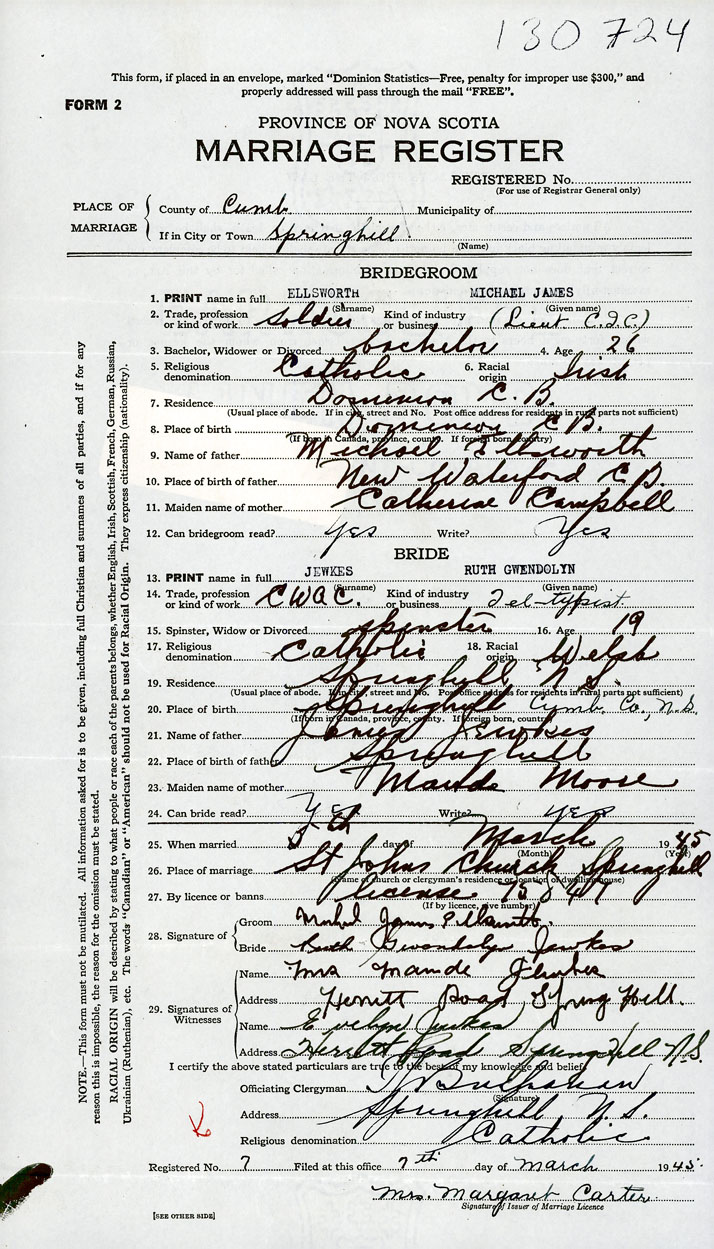 130724
This form, if placed in an envelope, marked “Dominion Statistics—Free, penalty for improper use $300,” and
properly addressed will pass through the mail “FREE”.
FORM 2
PROVINCE OF NOVA SCOTIA
MARRIAGE REGISTER
REGISTERED No.
(For use of Registrar General only)
PLACE OF MARRIAGE
County of Cumb. Municipality of
If in City or Town Springhill.
(Name)
BRIDEGROOM
1. PRINT name in full ELLSWORTH MICHAEL JAMES
(Surname) (Given name)
2. Trade, profession or kind of work Soldier Kind of industry or business (Lieut C.I.C.)
3. Bachelor, Widower or Divorced bachelor 4. Age 26
5. Religious denomination Catholic 6. Racial origin Irish
7. Residence Dominion C.B.
(Usual place of abode. If in city, street and No. Post office address for residents in rural parts not sufficient)
8. Place of birth Dominion C.B.
(If born in Canada, province, county. If foreign born, country)
9. Name of father Michael Ellsworth
10. Place of birth of father New Waterford C.B.
11. Maiden name of mother Catherine Campbell
12. Can bridegroom read? Yes Write? Yes
BRIDE
13. PRINT name in full JEWKES RUTH GWENDOLYN
(Surname) (Given name)
14. Trade, profession or kind of work CWAC. Kind of industry or business Tel-typist
15. Spinster, Widow or Divorced spinster 16. Age 19
17. Religious denomination Catholic 18. Racial origin Welsh
19. Residence Springhill N.S.
(Usual place of abode. If in city, street and No. Post office address for residents in rural parts not sufficient)
20. Place of birth Springhill Cumb. Co., N.S.
(If born in Canada, province, county. If foreign born, country)
21. Name of father James Jewkes
22. Place of birth of father Springhill
23. Maiden name of mother Maude Moore
24. Can bride read? Yes Write? yes
25. When married 5th day of March 1945
(Month) (Year)
26. Place of marriage St Johns Church Springhill
(Name of church or clergyman's residence or location of dwelling house)
27. By licence or banns license
(If by licence, give number)
28. Signature of
Groom Michael James Ellsworth
Bride Ruth Gwendolyn Jewkes
29. Signatures of Witnesses
Name Mrs Maude Jewkes
Address Herritt Road Spring Hill.
Name Evelyn Jewkes
Address Herrett Road Spring Hill N.S.
I certify the above stated particulars are true to the best of my knowledge and belief.
Officiating Clergyman Buchanan
(Signature)
Address Springhill N.S.
Religious denomination Catholic
Registered No. 7 Filed at this office 7th day of March 1945.
Mrs. Margaret Carter
Signature of Issuer of Marriage Licence
[SEE OTHER SIDE]
NOTE.—This form must not be mutilated. All information asked for is to be given, including full Christian and surnames of all parties, and if for any
reason this is impossible, the reason for the omission must be stated.
RACIAL ORIGIN will be described by stating to what people or race each of the parents belongs, whether English, Irish, Scottish, French, German, Russian,
Ukrainian (Ruthenian), etc. The words “Canadian” or “American” should not be used for Racial Origin. They express citizenship (nationality).